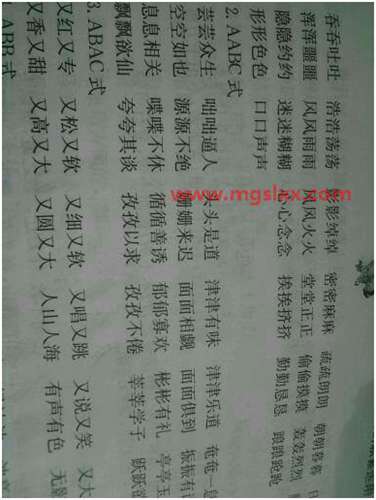 吞吞吐吐 浩浩荡荡 影影绰绰 密密麻麻 疏疏朗朗 朝朝暮暮
浑浑噩噩 风风雨雨 风风火火 堂堂正正 偷偷摸摸 轰轰烈烈
隐隐约约 迷迷糊糊 心心念念 挨挨挤挤 勤勤恳恳 踉踉跄跄
形形色色 口口声声
2. AABC 式
芸芸众生 咄咄逼人 头头是道 津津有味 津津乐道 奄奄一
空空如也 源源不绝 姗姗来迟 面面相觑 面面俱到 振振有
息息相关 喋喋不休 循循善诱 郁郁寡欢 彬彬有礼 亭亭玉
飘飘欲仙 夸夸其谈 孜孜以求 孜孜不倦 莘莘学子 跃跃
3. ABAC 式
又红又专 又松又软 又细又软 又唱又跳 又说又笑 又大
又香又甜 又高又大 又圆又大 人山人海 有声有色 无
ABB 式
www.mgslsx.com